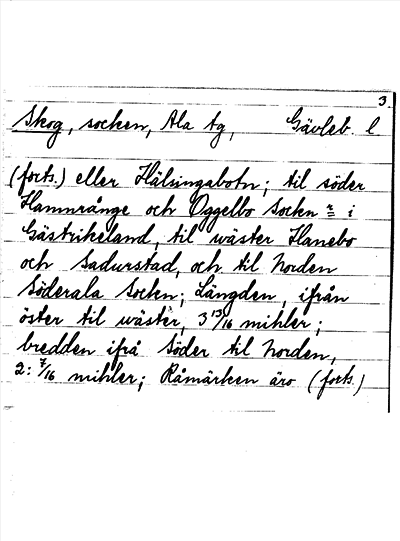 3
Skog, socken, Ala tg, Gävleb. l
(forts.) eller Hälsingabotn; til söder
Hamnrånge och Oggelbo Sockn r = i
Gästrikeland, til wäster Hanebo
och Sadurstad, och til Norden
Söderala Sockn; Längden, ifrån
öster til wäster, 3 13/16 mihler;
bredden ifrå Söder til Norden,
2: 7/16 mihler; Råmärken äro (forts.)